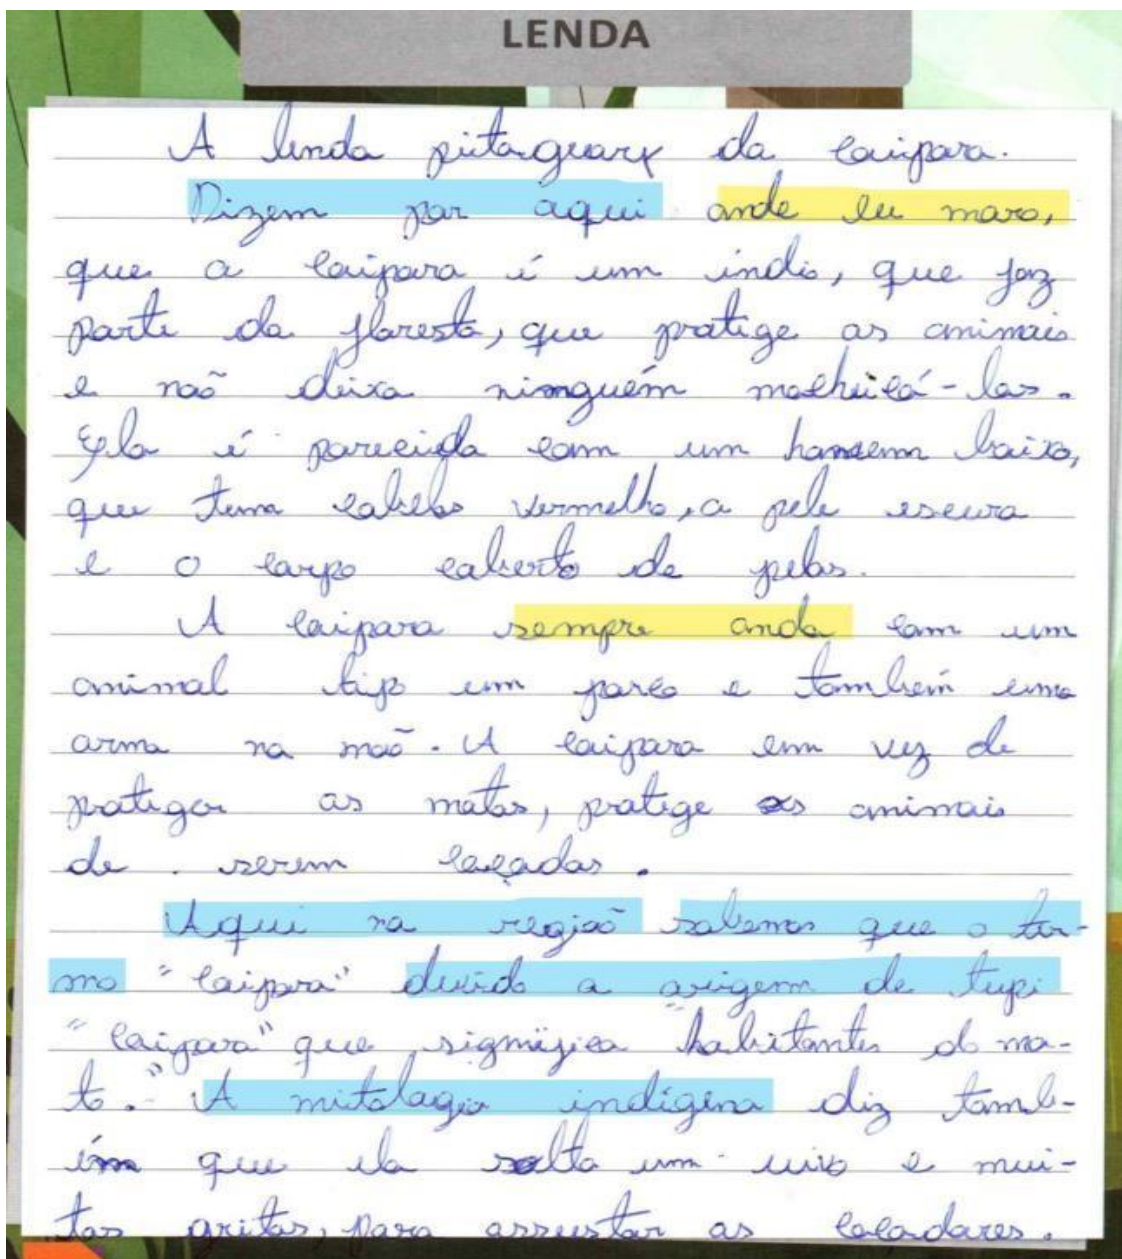 LENDA
A lenda pitaguary da caipora.
Dizem por aqui onde eu moro,
que a caipora é um índio, que faz
parte da floresta, que protege os animais
e não deixa ninguém machucá-los.
Ela é parecida com um homem baixo,
que tem cabelos vermelho, a pele escura
e o corpo coberto de pelos.
A caipora sempre anda com um
animal tipo um porco e também uma
arma na mão. A caipora em vez de
proteger as matas, protege os animais
de serem caçados.
Aqui na região sabemos que o ter-
mo "caipora" devido a origem do tupi
"caipora" que significa "habitantes do ma-
to." A mitologia indígena diz tamb-
ém que ela solta um uivo e mui-
tos gritos, para assustar os caçadores.